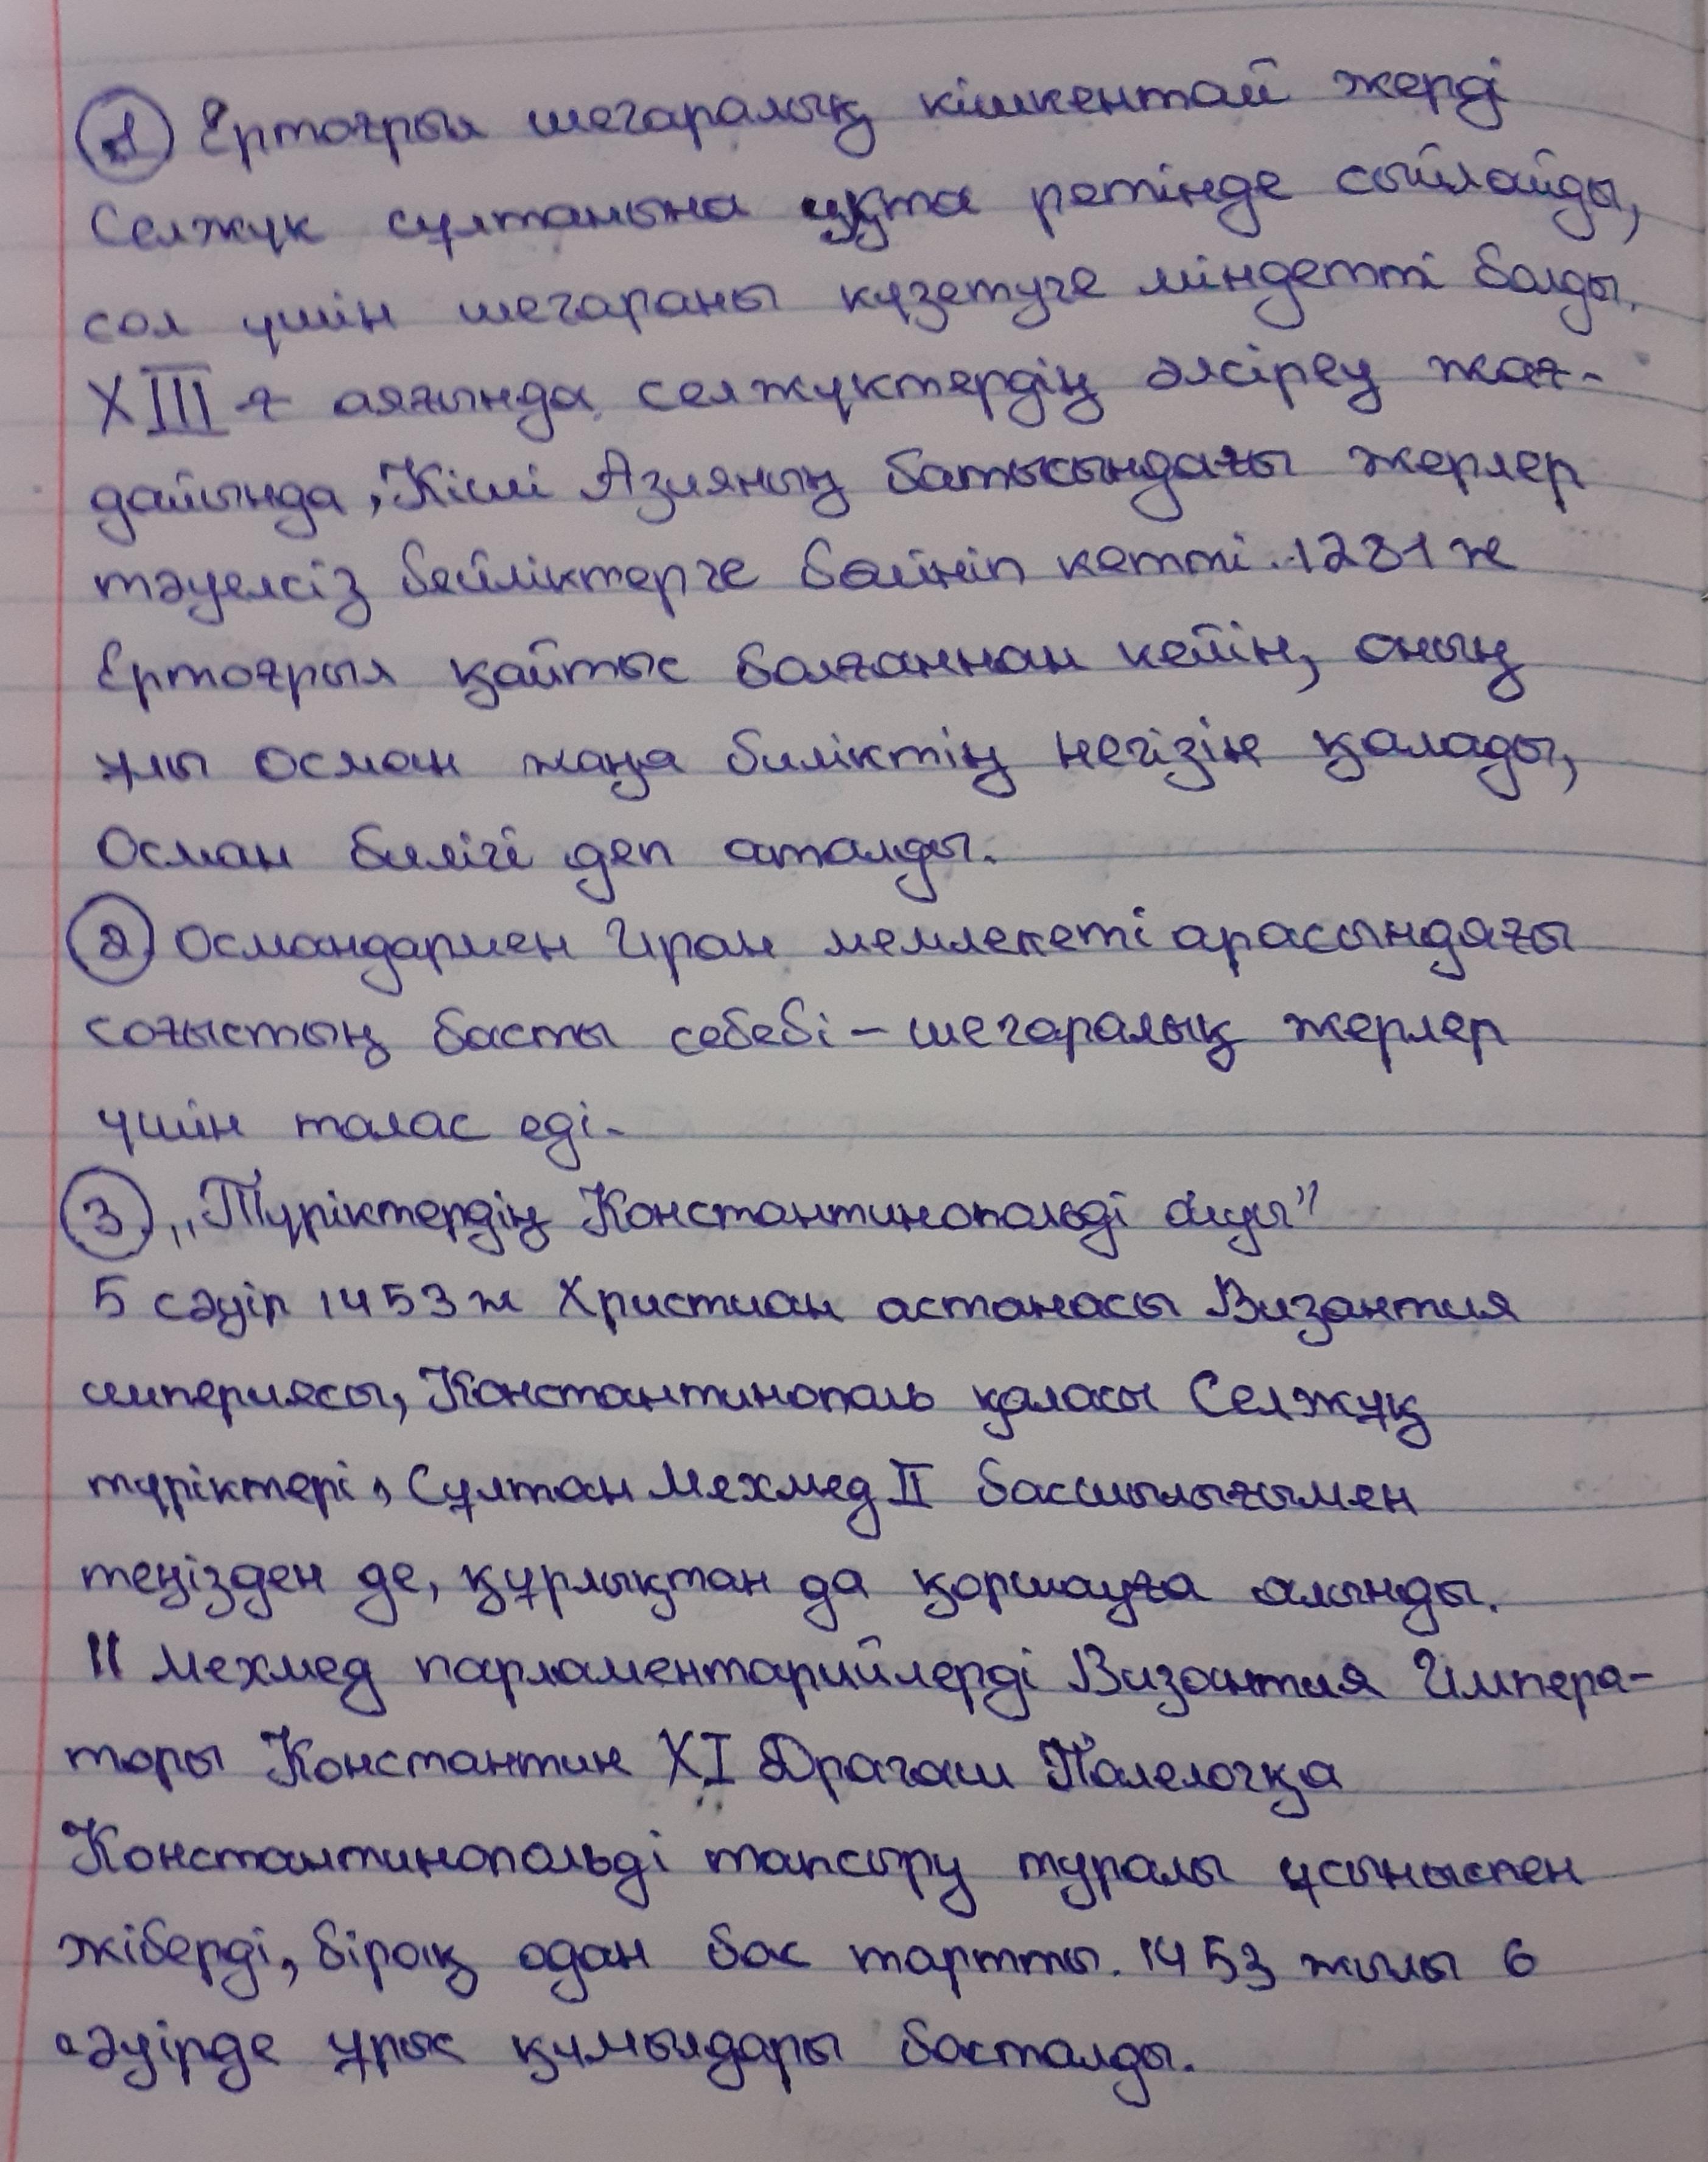 1 Ертоғрыл шегаралық кішкентай жерді
Селжук сұлтанына иқта ретінде сыйлайды,
сол үшін шегараны күзетуге міндетті болды.
XIII ғ аяғында селжуктердің әлсіреу жағ-
дайында, Кіші Азияның батысындағы жерлер
тәуелсіз бейліктерге бөлініп кетті. 1281 ж
Ертоғрыл қайтыс болғаннан кейін, оның
ұлы Осман жаңа биліктің негізін қалады,
Осман билігі деп аталды.
2 Османдармен Иран мемлекеті арасындағы
соғыстың басты себебі – шегаралық жерлер
үшін талас еді.
3 „Түріктердің Константинопольді алуы"
5 сәуір 1453 ж Христиан астанасы Византия
империясы, Константинополь қаласы Селжұқ
түріктері, Сұлтан Мехмед II басшылығымен
теңізден де, құрлықтан да қоршауға алынды.
II Мехмед парламентарийлерді Византия Импера-
торы Константин XI Драгаш Палелогқа
Константинопольді тапсыру туралы ұсыныспен
жіберді, бірақ одан бас тартты. 1453 жылы 6
сәуірде ұрыс қимылдары басталды.